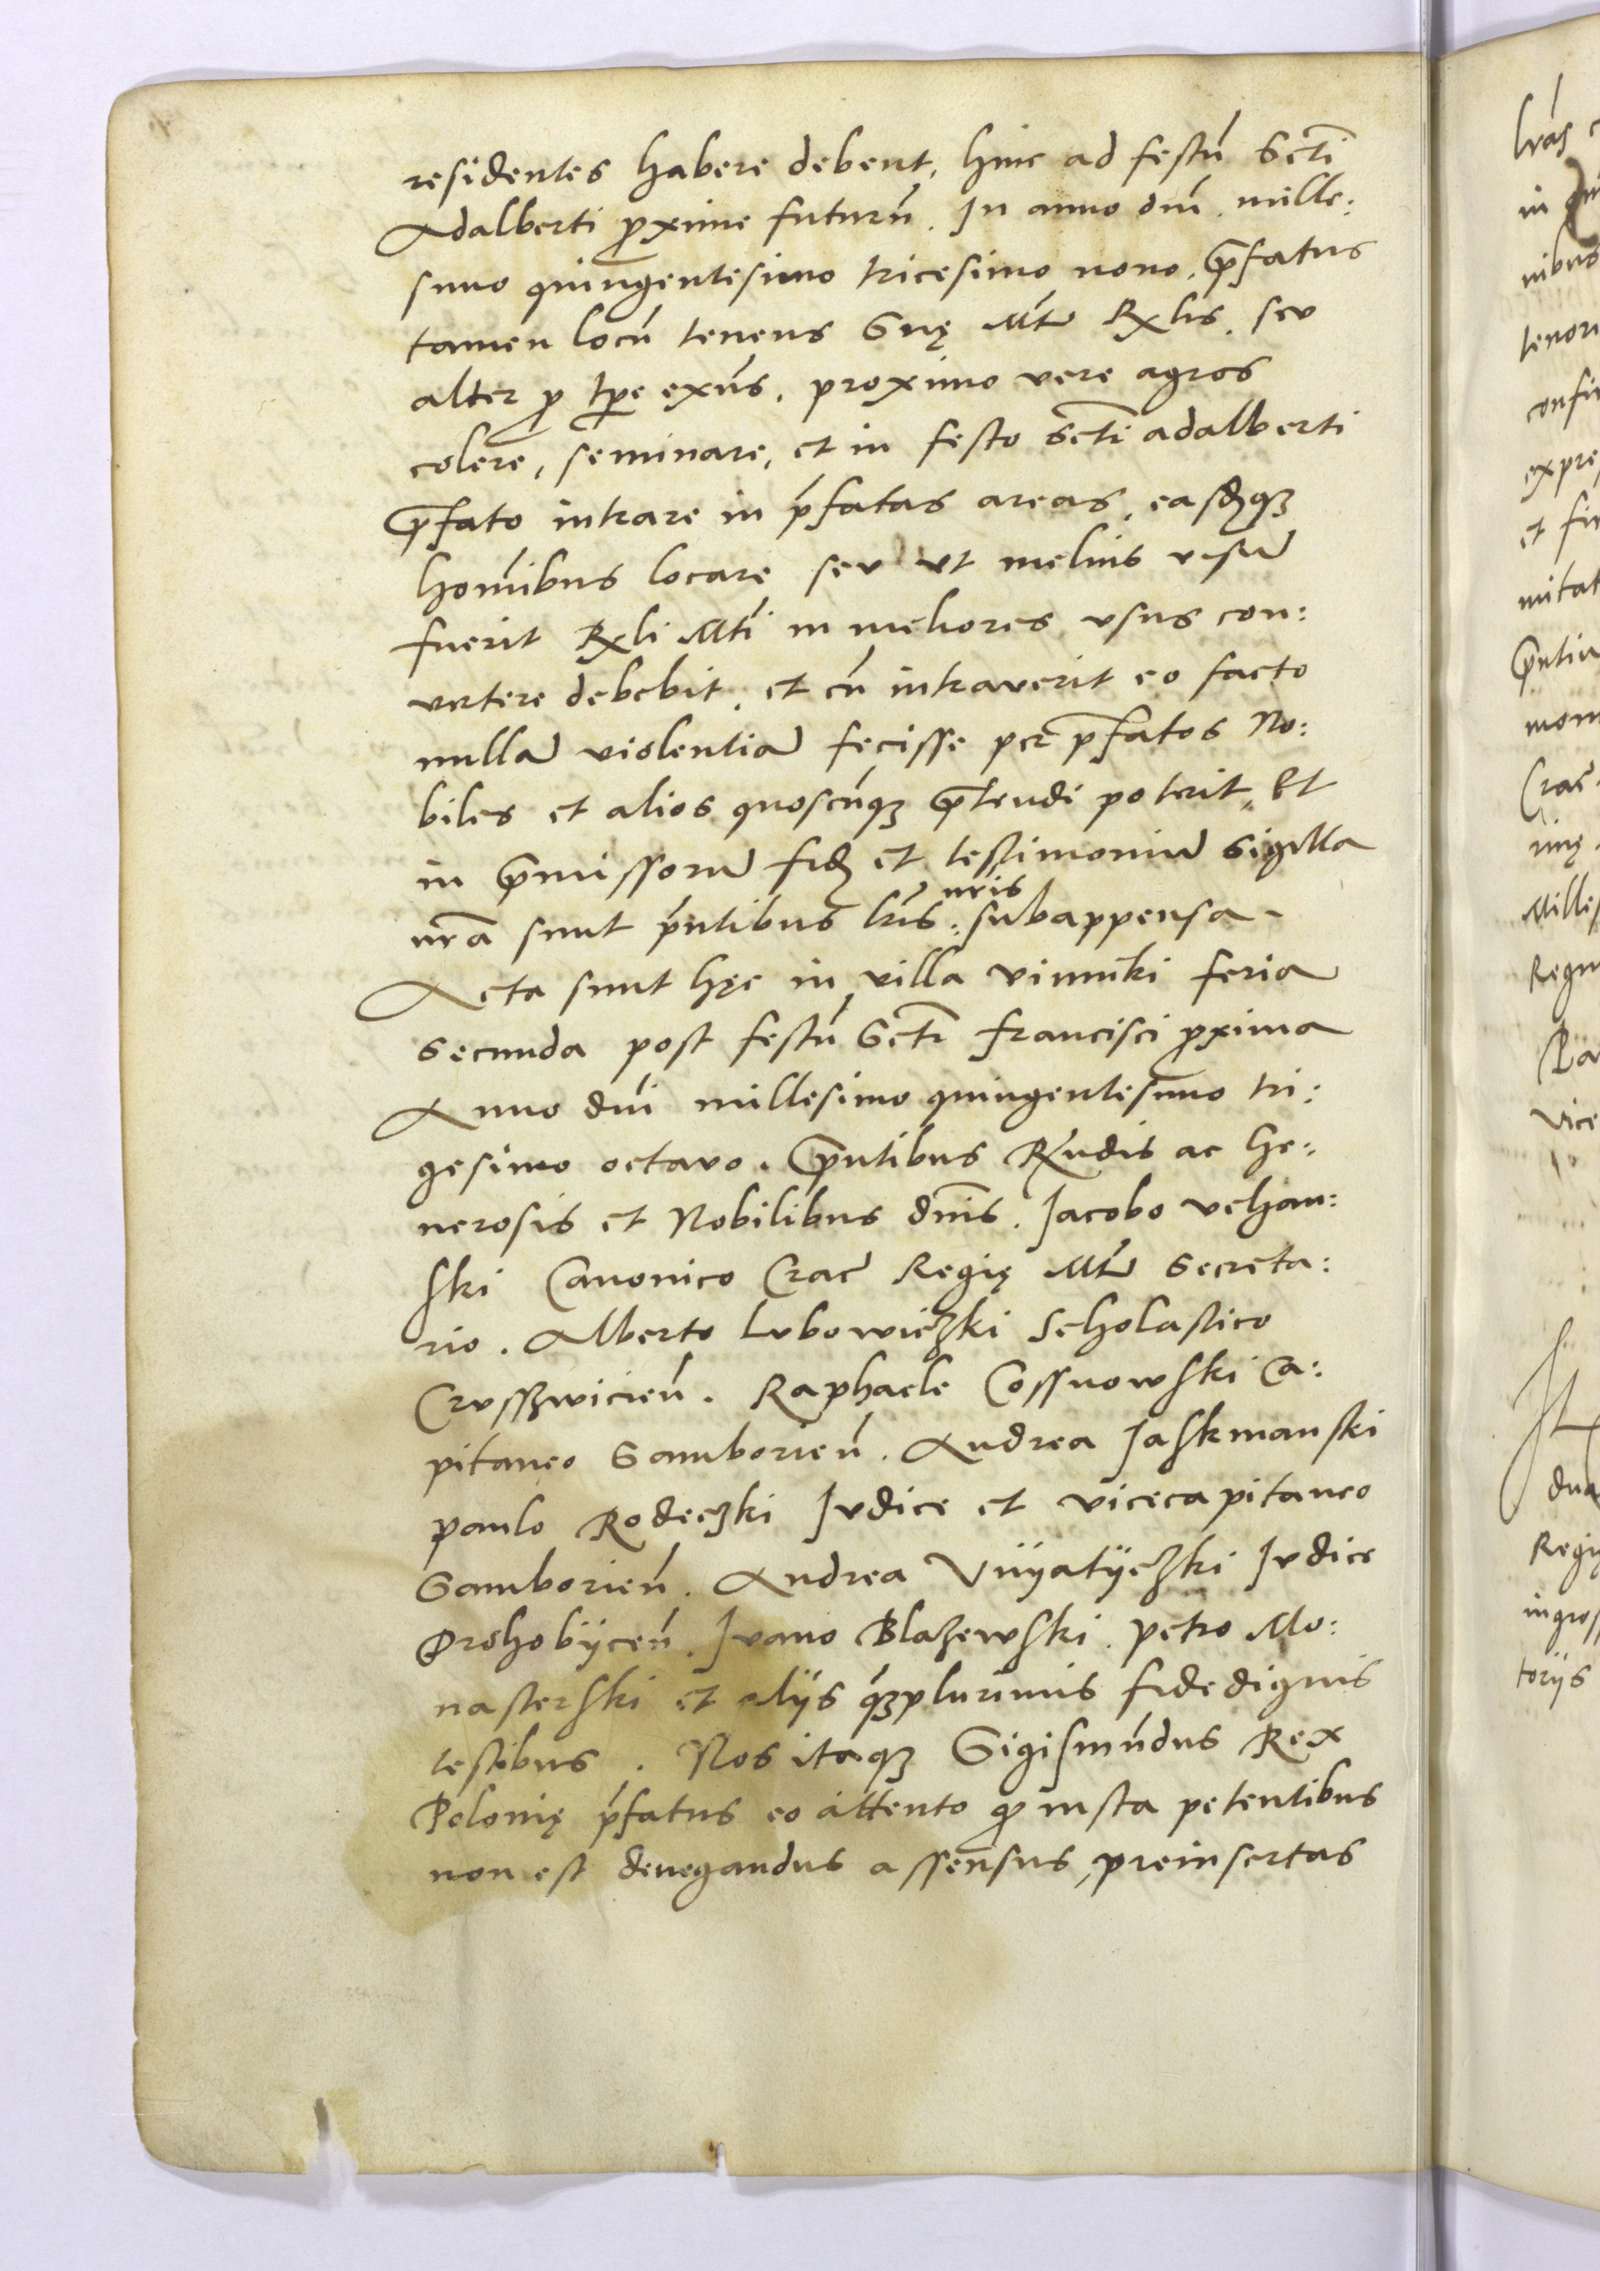 residentes habere debent, hinc ad festũ Scti
Adalberti ꝓxime futurũ. In anno dni. mille:
simo quingentesimo tricesimo nono. Prefatus
tamen locũ tenens Suę Mtis Rxlis. seu
alter ꝓ tp̃e exñs, proximo vere agros
colere, seminare, et in festo Scti adalberti
prefato intrare in p̃fatas areas, easdqꝫ
hominibus locare seu ut melius visũ
fuerit Rxli Mti in meliores usus con:
vertere debebit. et cũ intraverit eo facto
nullã violentiã fecisse per p̃fatos No:
biles et alios quoscũqꝫ p̃tendi poterit, Et
in p̃missorũ fidẽ et testimoniũ sigilla
nr̃a sunt p̃ntibus lr̃is: nris subappensa.
Acta sunt hęc in villa vinniki feria
secunda post festũ Scti francisci ꝓxima
Anno dñi millesimo quingentesimo tri:
gesimo octavo. Pñtibus Rxñdis ac Ge:
nerosis et Nobilibus dñis. Jacobo vchan:
ski Canonico Crac̃ Regię Mtis Secreta:
rio. Alberto Lubowieczki Scholastico
Crusszwicieñ. Raphaele Cossnowski Ca:
pitaneo Samborieñ. Andrea Jaskmanski
paulo Rodeczki Judice et vicecapitaneo
Samborieñ. Andrea Vnyatyczki Judice
Drohobyceñ. Ivano Blazewski. petro Mo:
nasterski et aliis qꝫplurimis fidedignis
testibus. Nos itaqꝫ Sigismũdus Rex
Polonię p̃fatus eo attento ꝙ iusta petentibus
non est denegandus assensus, preinsertas
lr̃as
in
nibus
tenor
confir
expres
et fir
mitat
p̃ntiũ
mon
Crac̃
nię
Milles
Regn
Vice
Regię
ingros
toriis